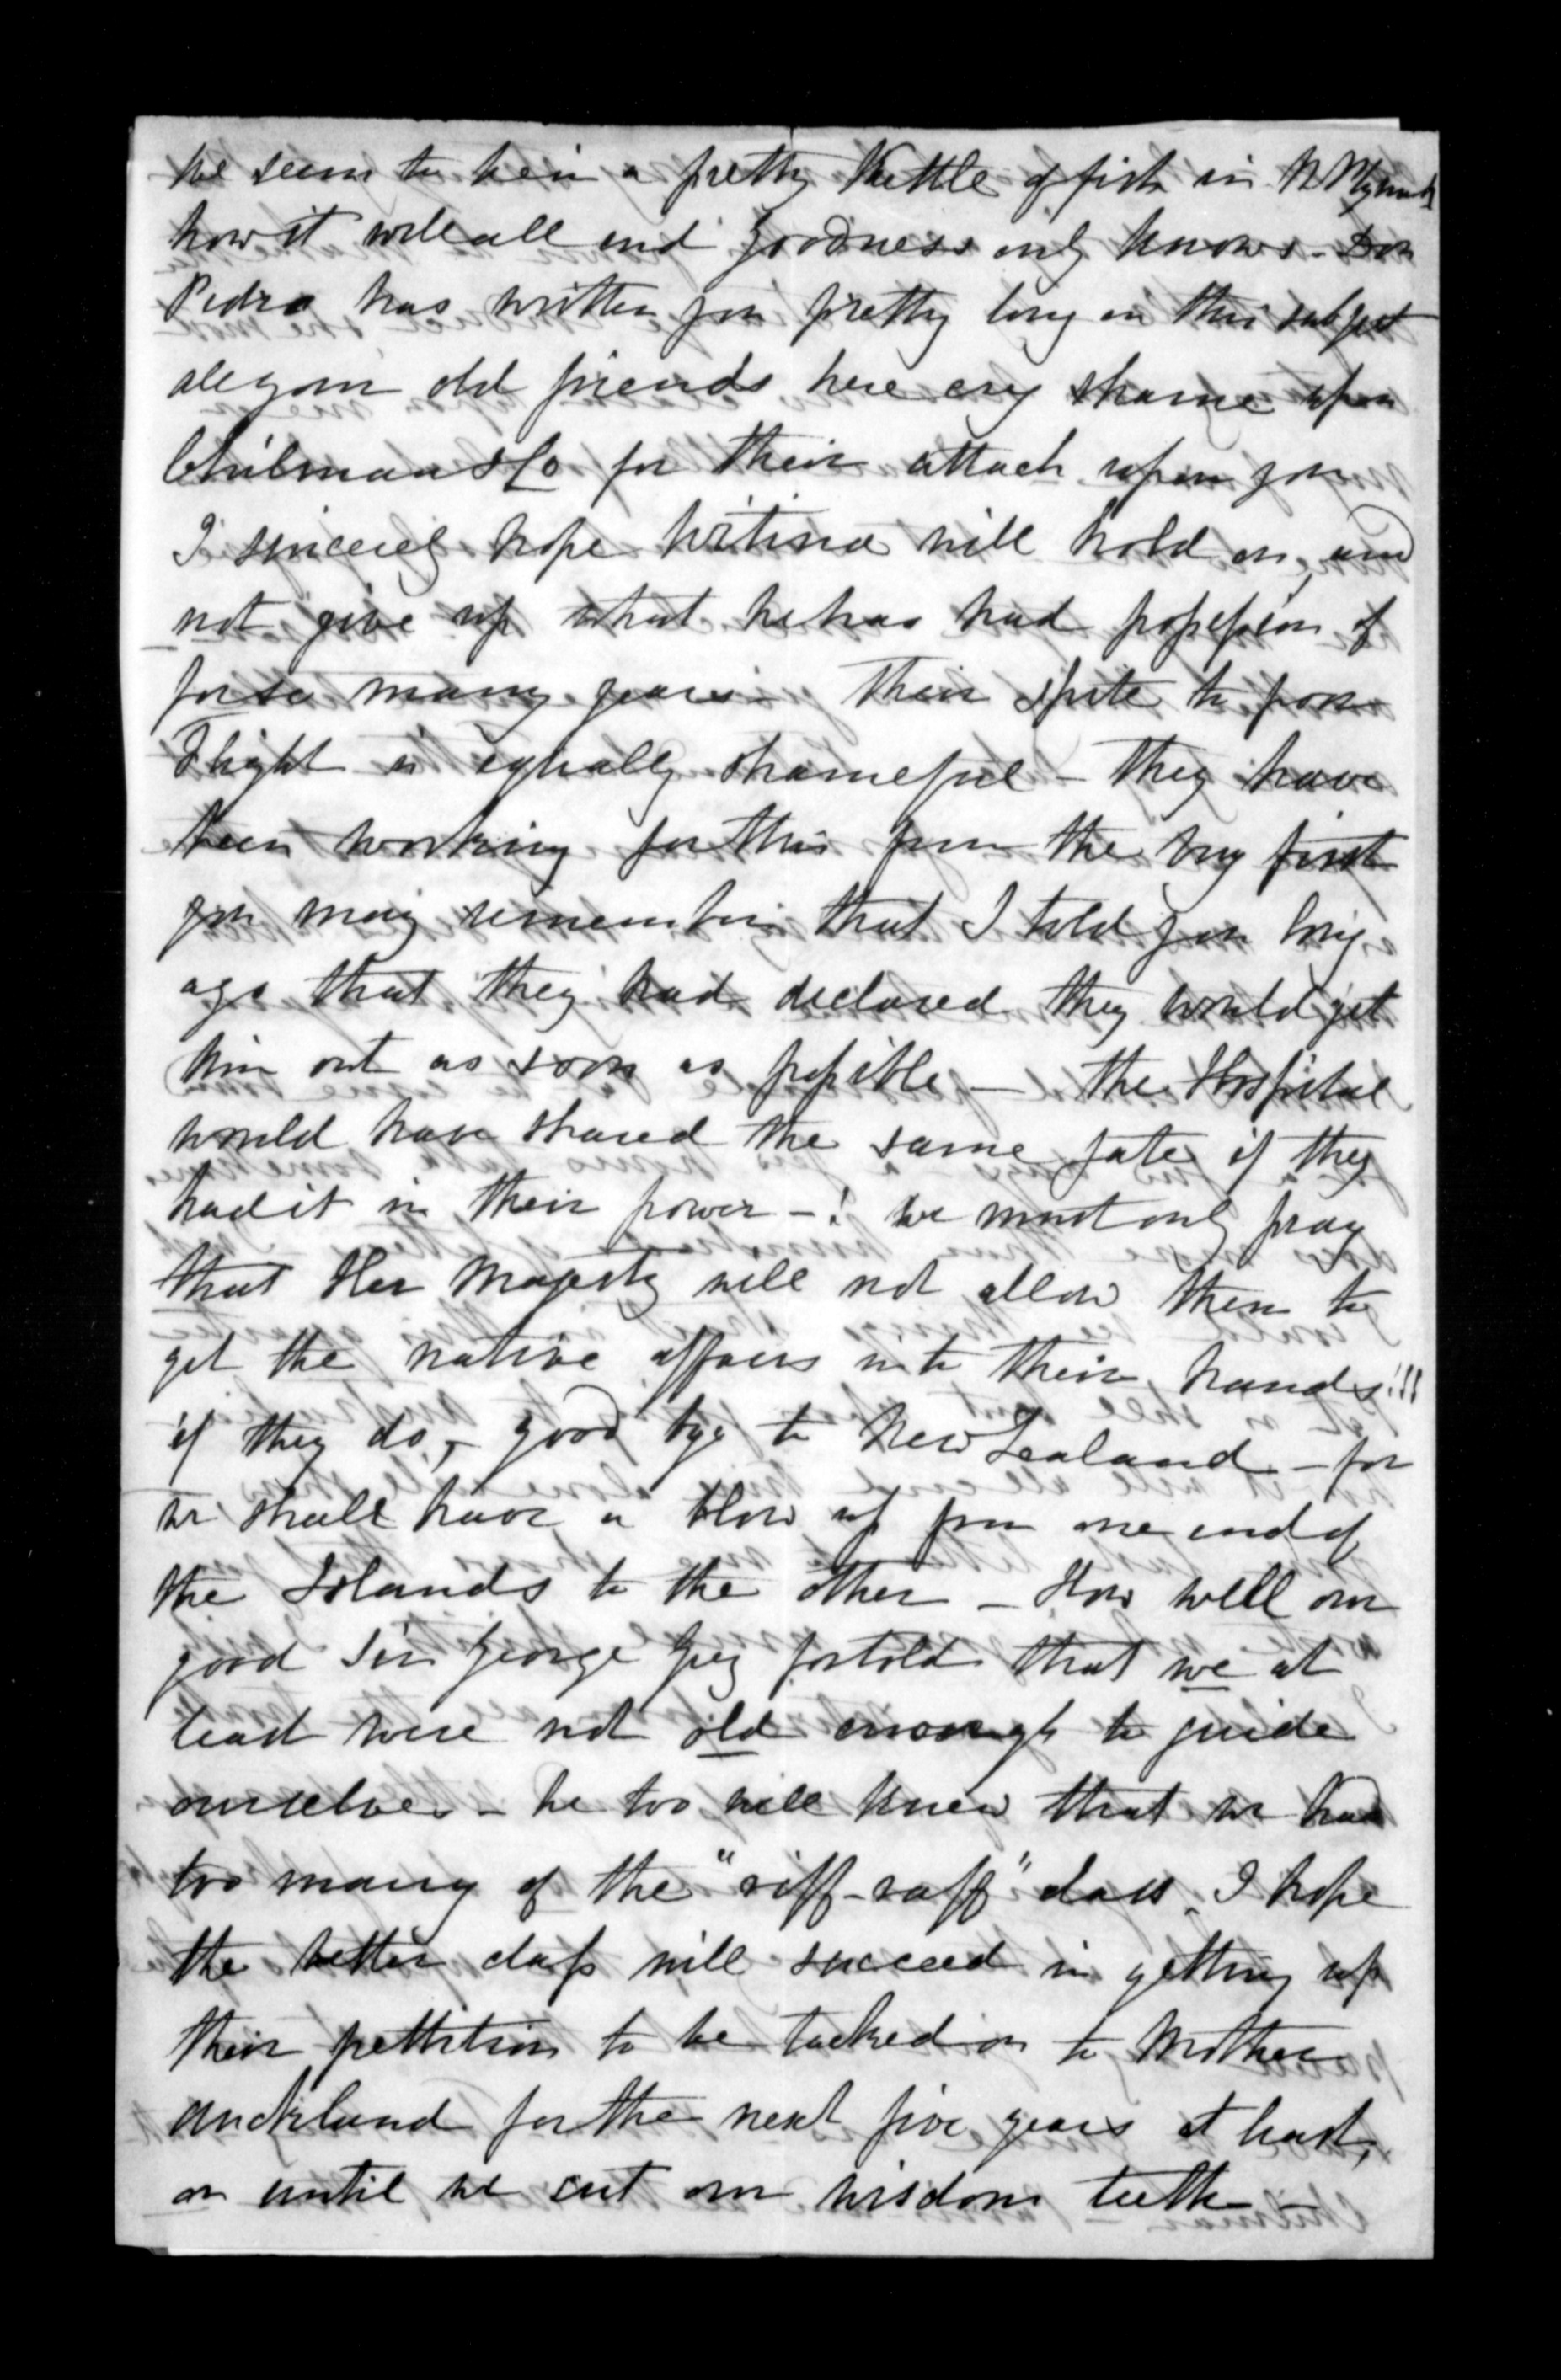 We seem to be in a pretty Kettle of fish in N Plymouth
how it will all end Goodness only knows - Don
Pedro has written you pretty long on this subject
all your old friends here cry shame upon
Chilman & Co for their attack upon you
I sincerely hope Witina will hold on, and
not give up what he has had possession of
for so many years - Their spite to poor
Flight is equally shameful - they have
been working for this from the very first
you may remember that I told you long
ago that they had declared they would get
him out as soon as possible - the Hospital
would have shared the same fate if they
had it in their power - ! We must only pray
that Her Majesty will not allow them to
get the native affairs into their hands!!!
if they do, good bye to New Zealand - for
we shall have a blow up from one end of
the Islands to the other - How well our
good Sir George Grey fortold that we at
least were not old enough to guide
ourselves - he too well knew that we had
too many of the "riff-raff" class. I hope
the better class will succeed in getting up
their pettition to be tacked on to Mother
Auckland for the next five years at least,
or until we cut our wisdom teeth -